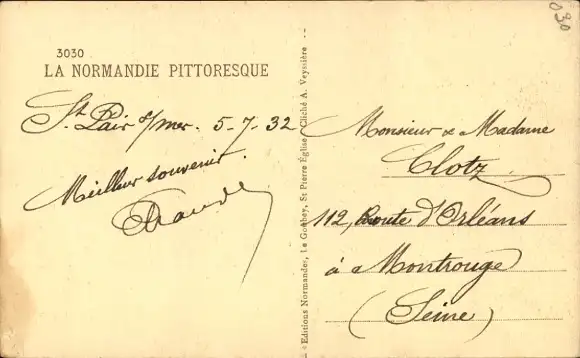 3030
LA NORMANDIE PITTORESQUE
St Pair s/mer. 5-7-32
Meilleur souvenir.
Monsieur & Madame
Clotz
112, Route d'Orléans
à Montrouge
(Seine)
"Editions Normandes, Le Goubey, St Pierre Église - Cliché A. Veyssière
030